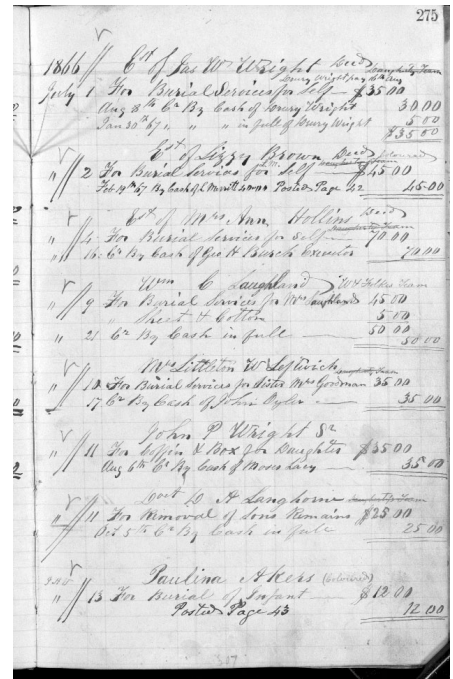 275
1866 Est of Jas W. Wright Deed
July 1 For Burial Services for Self $35.00
Aug 8th Cr By Cash of Drury Wright 30 00
Jan 30th 67 " " " in full of Drury Wright 5 00
$35 00
Est of Lizzy Brown Deed Coloured
" 2 For Burial Services for Self $45.00
Feb 19th 67 By Cash of Posted Page 42 45.00
Est of Mrs Ann Hollins Deed
" 4 For Burial Services for Self 70.00
" 16 Cr By Cash of Geo H Burch Executor 70.00
Wm C Laughland
" 9 For Burial Services for Mrs Laughland 45 00
Sheet & Cotton 5 00
" 21 Cr By Cash in full 50 00
50 00
Mrs Littleton W Leftwich
" 10 For Burial Services for Sister Mrs Goodman 35 00
" 17 Cr By Cash of John Oyler 35 00
John P Wright Sr
" 11 For Coffin & Box for Daughter $35 00
Aug 6th Cr By Cash of Moses Lacy 35 00
Doct D A Langhorne
" 11 For Removal of Sons Remains $25 00
Oct 5th Cr By Cash in full 25 00
Paulina Akers (Coloured)
" 13 For Burial of Infant $12 00
Posted Page 43 12 00